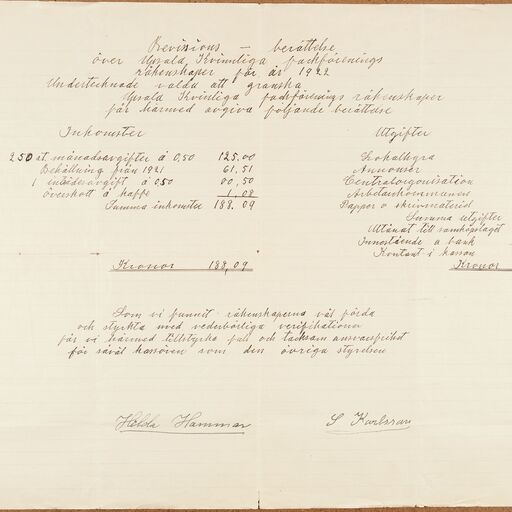 Revisions - berättelse
över Upsala Kvinnliga fackförenings
räkenskaper för år 1922
Undertecknade valda att granska
Upsala Kvinliga fackförenings räkenskaper
får härmed avgiva följande berättelse
Inkomster
250 st. månadsavgifter á 0,50 125,00
Behållning från 1921 61,51
1 inträdesavgift á 0,50 00,50
överskott å kaffe 1,08
Summa inkomster 188,09
Kronor 188,09
Utgifter
Lokalhyra
Annonser
Centralorganisation
Arbetarekommunen
Papper o skrivmateriel
Summa utgifter
Utlånat till
Innestående å bank
Kontant i kassan
Kronor
Som vi funnit räkenskaperna väl förda
och styrkta med vederbörliga verifikationer
får vi härmed tillstyrka full och tacksam ansvarsfrihet
för såväl kassören som den övriga styrelsen
Hilda Hammar
S Karlsson